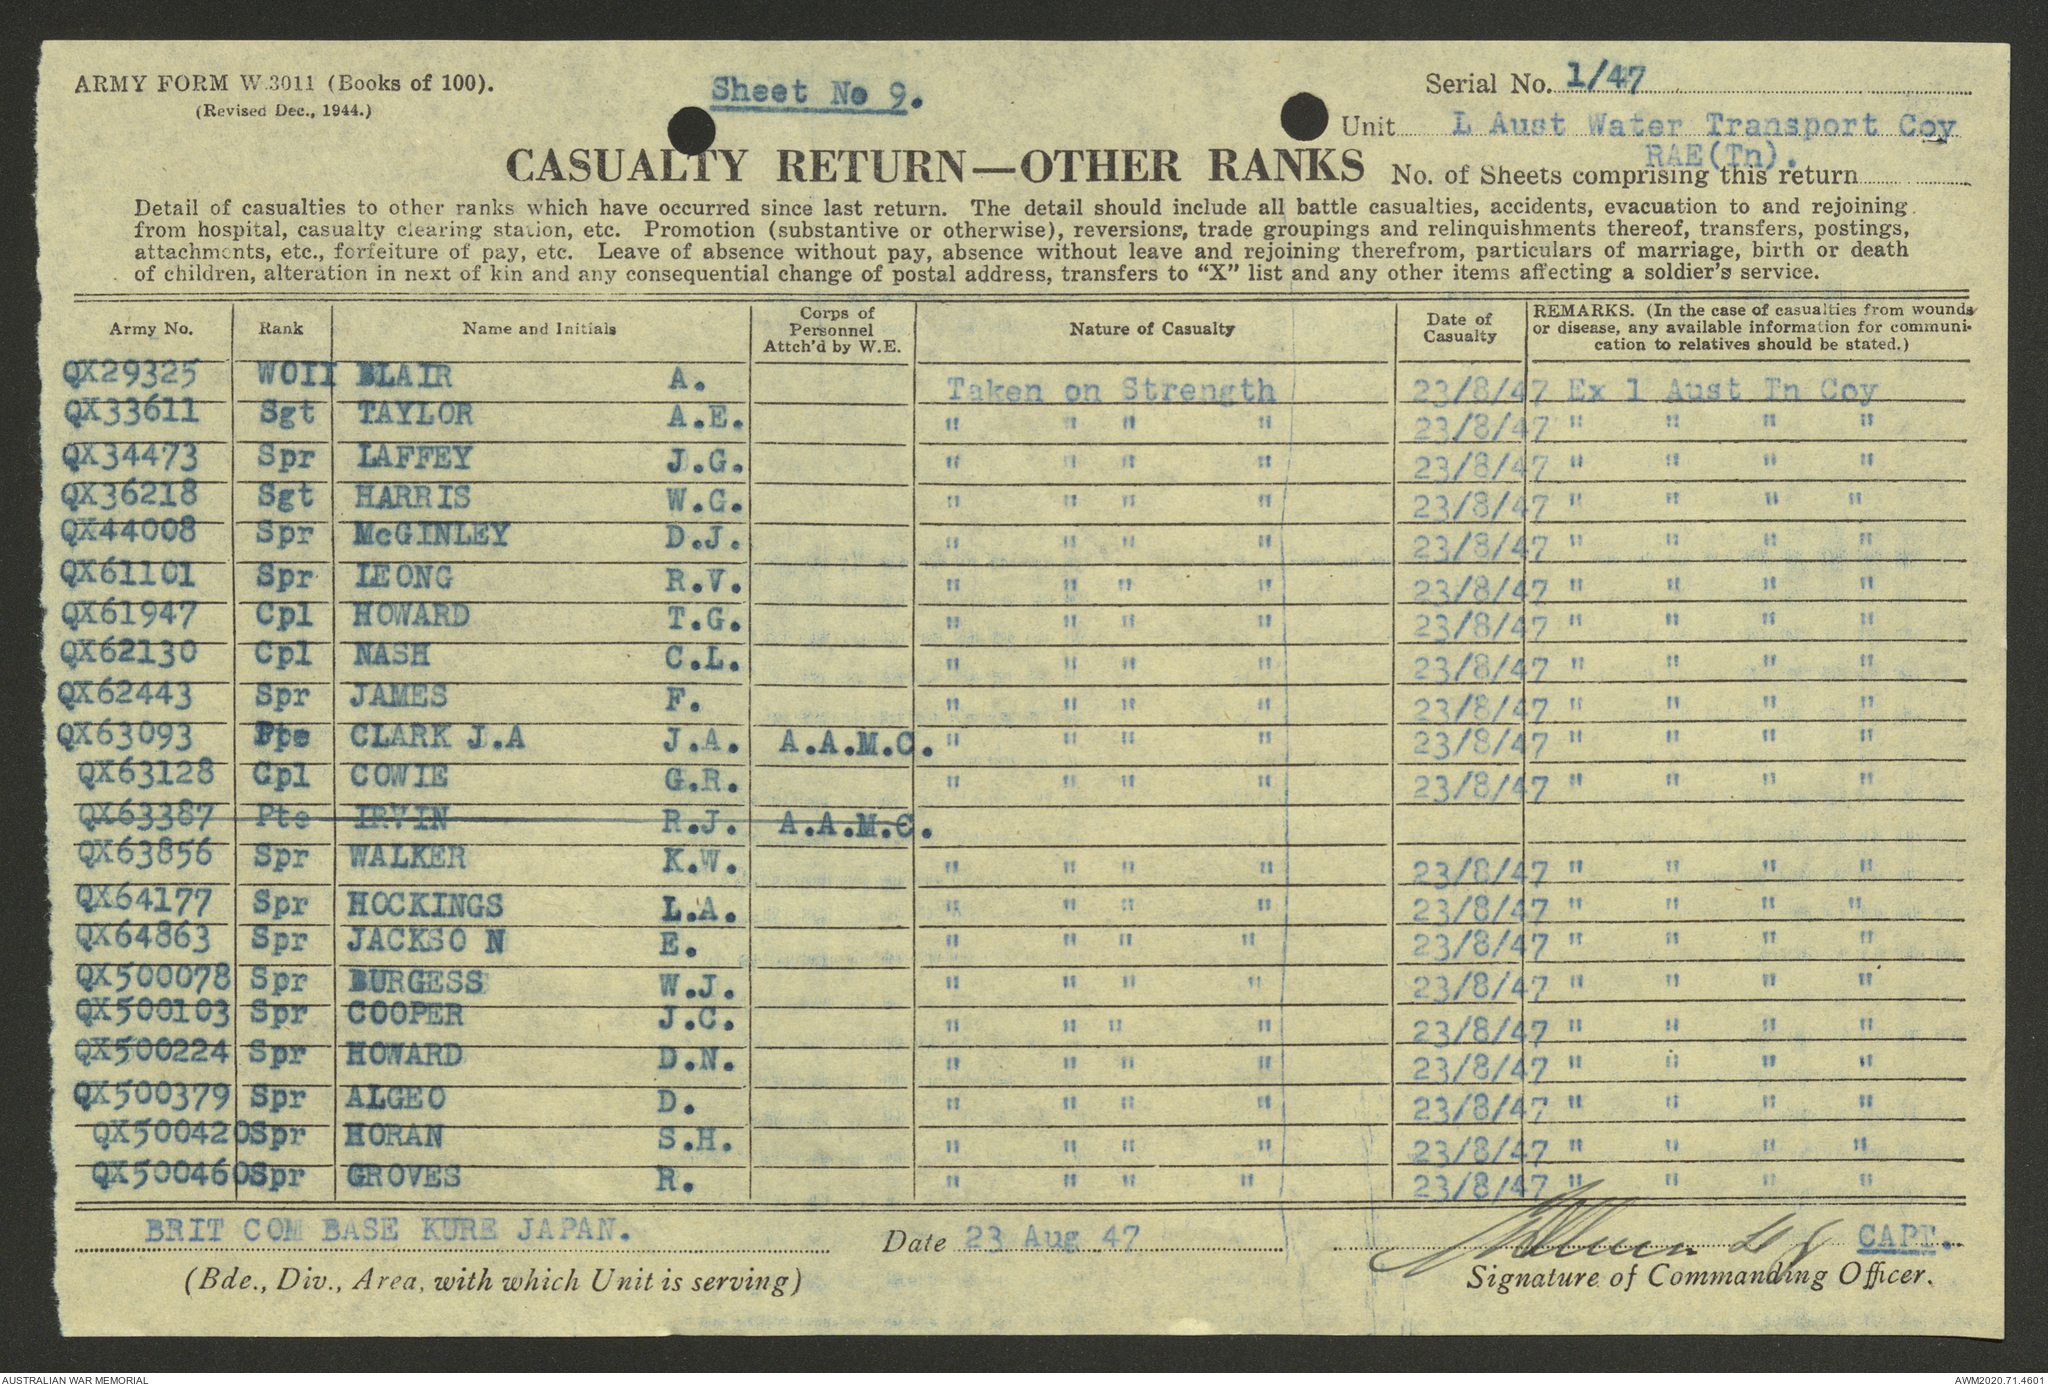 ARMY FORM W.3011 (Books of 100).
(Revised Dec., 1944.)
Sheet No 9.
Serial No. 1/47
Unit L Aust Water Transport Coy
RAE(Tn).
CASUALTY RETURN—OTHER RANKS
No. of Sheets comprising this return
Detail of casualties to other ranks which have occurred since last return. The detail should include all battle casualties, accidents, evacuation to and rejoining
from hospital, casualty clearing station, etc. Promotion (substantive or otherwise), reversions, trade groupings and relinquishments thereof, transfers, postings,
attachments, etc., forfeiture of pay, etc. Leave of absence without pay, absence without leave and rejoining therefrom, particulars of marriage, birth or death
of children, alteration in next of kin and any consequential change of postal address, transfers to “X” list and any other items affecting a soldier's service.
Army No. Rank Name and Initials Corps of Personnel Attch'd by W.E. Nature of Casualty Date of Casualty REMARKS. (In the case of casualties from wounds or disease, any available information for communi-cation to relatives should be stated.)
QX29325 WOII BLAIR A. Taken on Strength 23/8/47 Ex 1 Aust Tn Coy
QX33611 Sgt TAYLOR A.E. " " " " 23/8/47 " " " "
QX34473 Spr LAFFEY J.G. " " " " 23/8/47 " " " "
QX36218 Sgt HARRIS W.G. " " " " 23/8/47 " " " "
QX44008 Spr McGINLEY D.J. " " " " 23/8/47 " " " "
QX61101 Spr LEONG R.V. " " " " 23/8/47 " " " "
QX61947 Cpl HOWARD T.G. " " " " 23/8/47 " " " "
QX62130 Cpl NASH C.L. " " " " 23/8/47 " " " "
QX62443 Spr JAMES F. " " " " 23/8/47 " " " "
QX63093 CLARK J.A J.A. A.A.M.C. " " " " 23/8/47 " " " "
QX63128 Cpl COWIE G.R. " " " " 23/8/47 " " " "
QX63387 Pte IRVIN R.J. A.A.M.C.
QX63856 Spr WALKER K.W. " " " " 23/8/47 " " " "
QX64177 Spr HOCKINGS L.A. " " " " 23/8/47 " " " "
QX64863 Spr JACKSO N E. " " " " 23/8/47 " " " "
QX500078 Spr BURGESS W.J. " " " " 23/8/47 " " " "
QX500103 Spr COOPER J.C. " " " " 23/8/47 " " " "
QX500224 Spr HOWARD D.N. " " " " 23/8/47 " " " "
QX500379 Spr ALGEO D. " " " " 23/8/47 " " " "
QX500420 Spr HORAN S.H. " " " " 23/8/47 " " " "
QX500460 Spr GROVES R. " " " " 23/8/47 " " " "
BRIT COM BASE KURE JAPAN. Date 23 Aug 47 CAPT.
(Bde., Div., Area, with which Unit is serving) Signature of Commanding Officer.
AUSTRALIAN WAR MEMORIAL AWM2020.71.4601